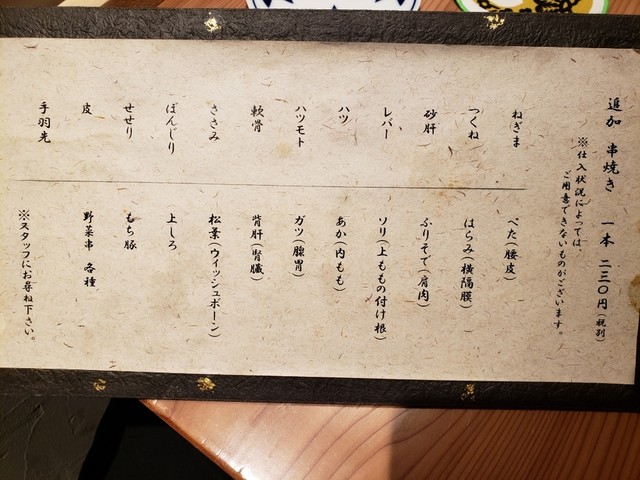 追加 串焼き 一本 二三〇円(税別)
※仕入状況によっては、
ご用意できないものがございます。
ねぎま
つくね
砂肝
レバー
ハツ
ハツモト
軟骨
ささみ
ぼんじり
せせり
皮
手羽先
ぺた(腰皮)
はらみ(横隔膜)
ふりそで(肩肉)
ソリ(上ももの付け根)
あか(内もも)
ガツ(腺胃)
背肝(腎臓)
松葉(ウィッシュボーン)
上しろ
もち豚
野菜串 各種
※スタッフにお尋ね下さい。